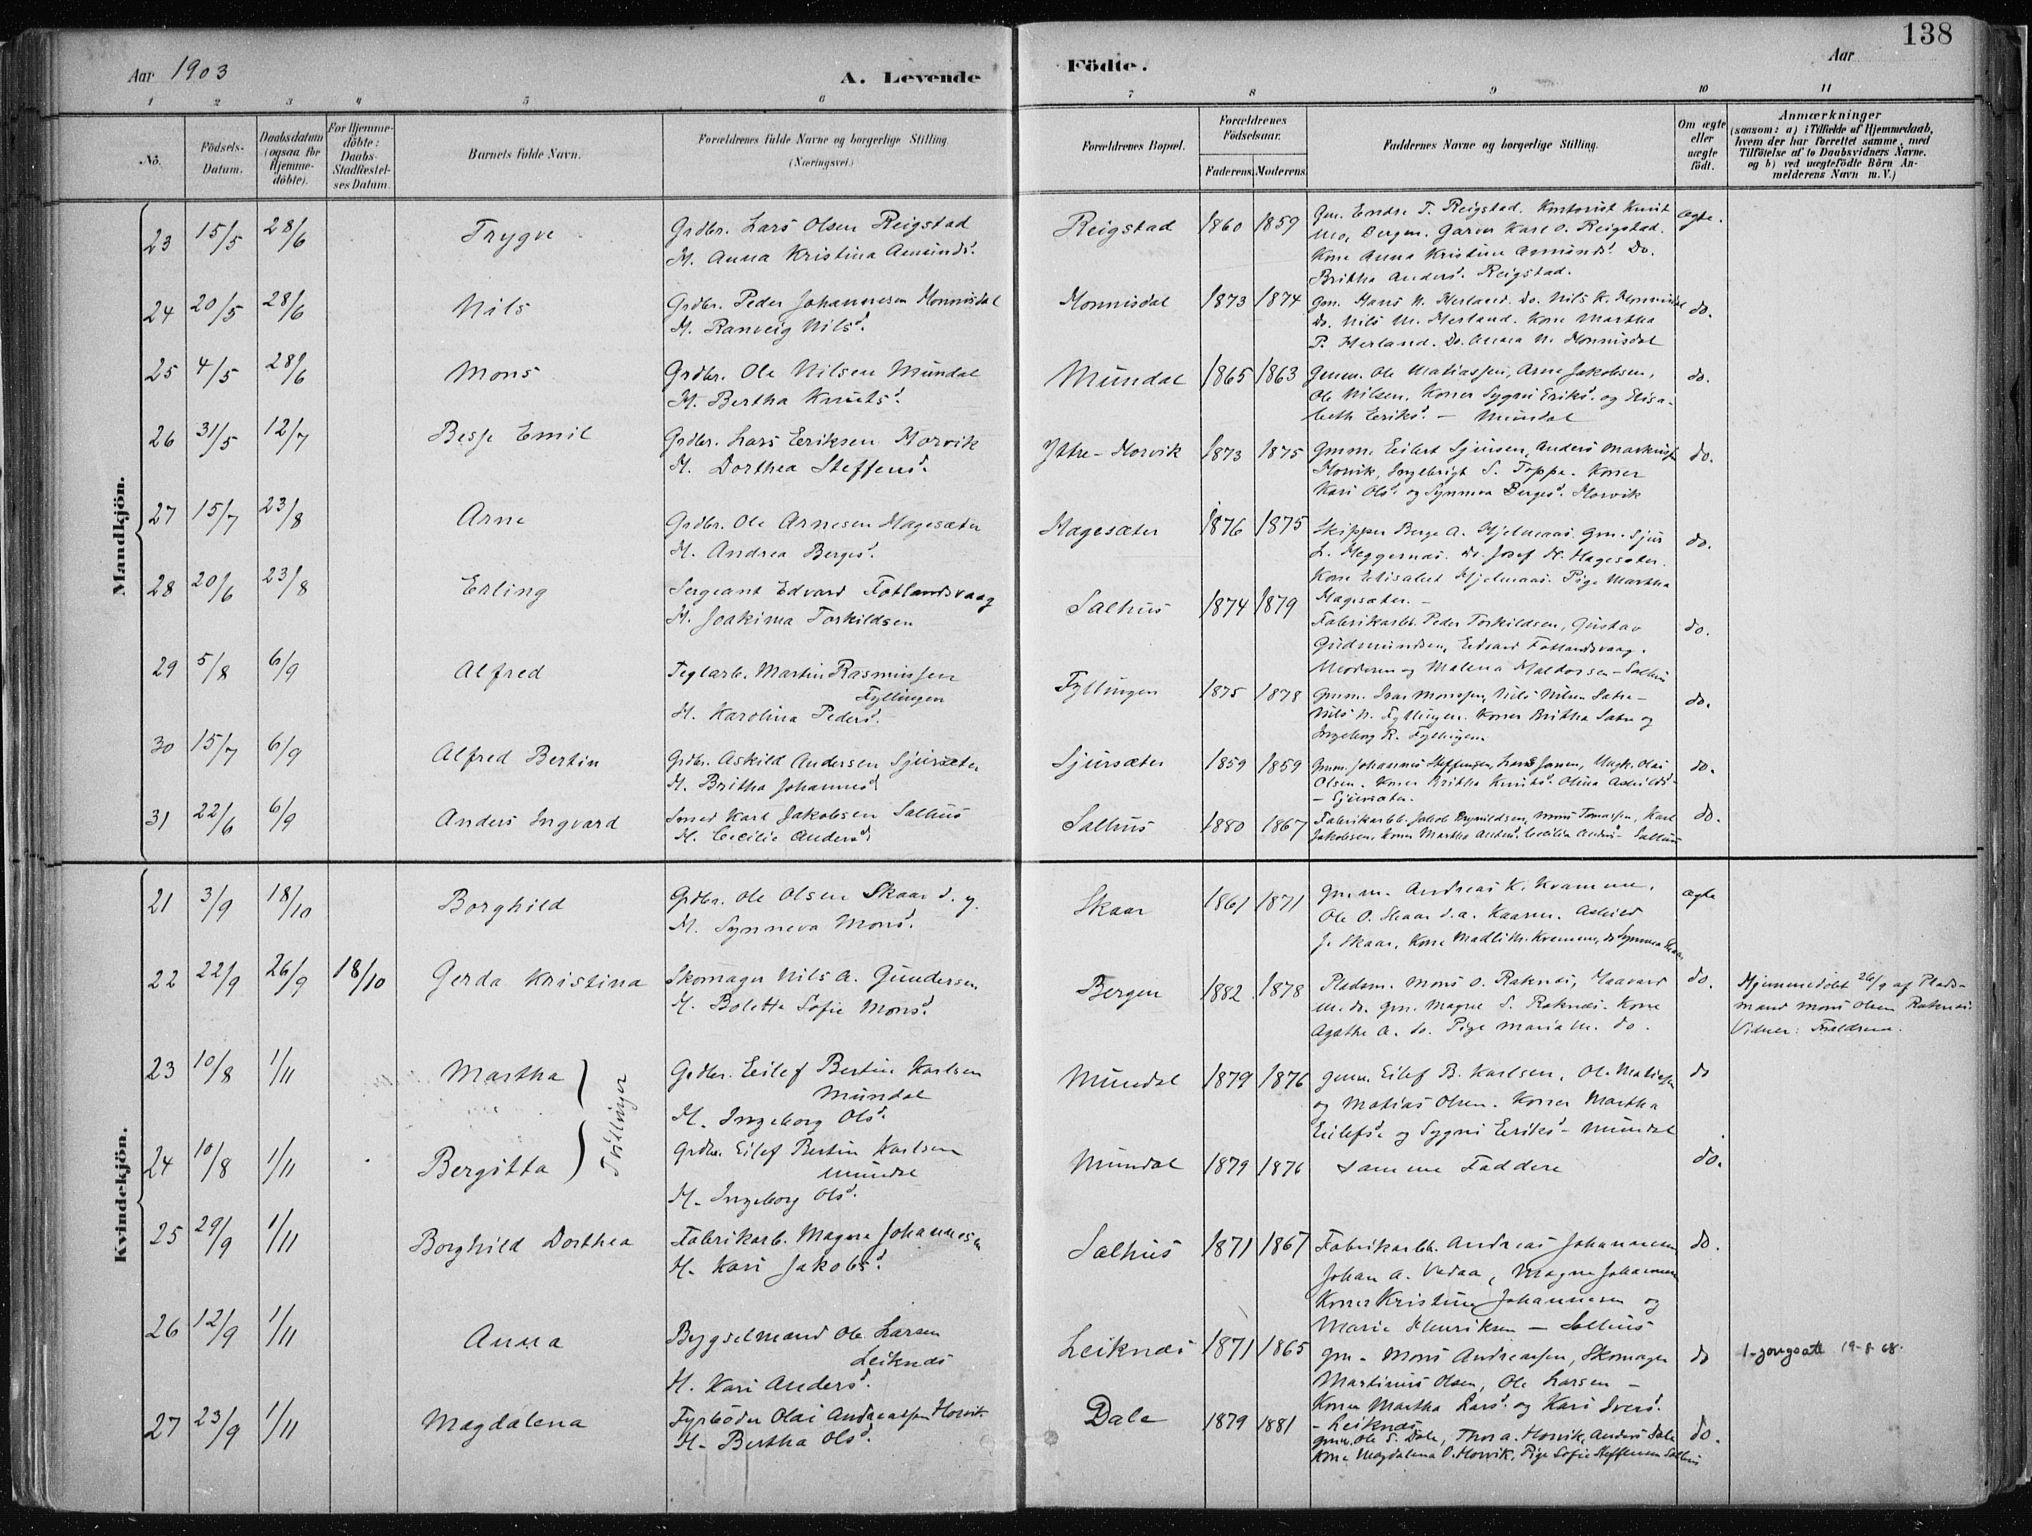 138
Aar 1903
A. Levende
Födte.
Aar
1 2 3 4 5 6 7 8 9 10 11
No.
Födsels-Datum.
Daabsdatum (ogsaa for Hjemme-döbte).
For Hjemme-döbte: Daabs-Stadfæstel-ses Datum.
Barnets fulde Navn.
Forældrenes fulde Navne og borgerlige Stilling (Næringsvei.)
Forældrenes Bopæl.
Forældrenes Födselsaar.
Faderens Moderens
Faddernes Navne og borgerlige Stilling.
Om ægte eller uægte födt.
Anmærkninger
(saasom: a) i Tilfælde af Hjemmedaab,
hvem der har forrettet samme, med
Tilföielse af to Daabsvidners Navne.
og b) ved uægtefödte Börn An-
melderens Navn m. V.)
Mandkjön.
23 15/5 28/6 Trygve Grdbr. Lars Olsen Reigstad
H. Anna Kristina Amundsd. Reigstad 1860 1859 Gm. Endre T. Reigstad. Kontorist Knut
Mo, Bergen. Garver Karl O. Reigstad.
Kone Anna Kristine Amundsd. Do.
Britha Andersd. Reigstad. ægte.
24 20/5 28/6 Nils Grdbr. Peder Johannesen Monnisdal
H. Ranveig Nilsd. Monnisdal 1873 1874 Gm. Hans N. Herland. do. Nils K. Monnisdal
Do. Nils M. Herland. Kone Martha
P. Herland. Do. Anna N. Monnisdal do.
25 4/5 28/6 Mons Grdbr. Ole Nilsen Mundal
H. Bertha Knutsd. Mundal 1865 1863 Gmm. Ole Matiassen, Arne Jakobsen,
Ole Nilsen. Koner Sygni Eriksd. og Elisa-
beth Eeriksd. - Mundal do.
26 31/5 12/7 Besse Emil Grdbr. Lars Eeriksen Horvik
H. Dorthea Steffensd. Ytre-Horvik 1873 1875 Gmm. Eilert Sjursen, Anders Markusse
Horvik, Ingebrigt S. Toppe. Koner
Kari Olsd. og Synneva Bergesd. Horvik do.
27 15/7 23/8 Arne Grdbr. Ole Arnesen Hagesæter
H. Andrea Bergesd. Hagesæter 1876 1875 Skipper Berge A. Hjelmaas. Gm. Sjur
L. Heggernæs. do. Josef H. Hagesæter.
Kone Elisabet Hjelmaas. Pige Martha
Hagesæter. - do.
28 20/6 23/8 Erling Sergeant Edvard Fotlandsvaag
H. Joakima Torkildsen Salhus 1874 1879 Fabrikarbb. Peder Torkildsen, Gustav
Gudmundsen, Edvard Fotlandsvaag.
Moderen og Malena Haldorsen - Salhus do.
29 5/8 6/9 Alfred Teglarb. Martin Rasmussen
Fyllingen
H. Karolina Pedersd. Fyllingen 1875 1878 Gmm. Ivar Monssen, Nils Nilsen Sætre -
Nils N. Fyllingen. Koner Britha Sætre og
Ingeborg R. Fyllingen do.
30 15/7 6/9 Alfred Bertin Grdbr. Askild Andersen Sjursæter
H. Britha Johannesd. Sjursæter 1859 1859 Gmm. Johannes Steffensen, Lars Jansen, Ungk. Olai
Olsen. Koner Britha Knutsd. Olina Askildsd.
- Sjursæter. do.
31 22/6 6/9 Anders Ingvard Smed Karl Jakobsen Salhus
H. Cecilie Andersd. Salhus 1880 1867 Fabrikarbb. Jakob Brynildsen, Mons Tomassen, Karl
Jakobsen, Koner Martha Andersd. Cecilia Andersd. - Salhus do.
Kvindekjön.
21 3/9 18/10 Borghild Grdbr. Ole Olsen Skaar d. y.
H. Synneva Monsd. Skaar 1861 1871 Gmm. Andreas K. Kvamme.
Ole O. Skaar d. a. Kaarm. Askild
J. Skaar, Kone Madli Kvamme, do Synneva Skaar ægte
22 22/9 26/9 18/10 Gerda Kristina Skomager Nils A. Gundersen
H. Bolette Sofie Monsd. Bergen 1882 1878 Pladsm. Mons O. Raknes, Haavard
M. do. Gm. Magne S. Raknes. Kone
Agathe A. do. Pige Maria M. do. do. Hjemmedöbt 26/9 af Plads-
mand Mons Olsen Raknes.
Vidner: Forældrene
23 10/8 1/11 Martha Grdbr. Eilef Bertin Karlsen
Mundal
H. Ingeborg Olsd. Mundal 1879 1876 Gmm. Eilef B. Karlsen, Ole Matiassen
og Matias Olsen. Koner Martha
Eilefsd. og Sygni Eeriksd. - Mundal do
Tvillinger
24 10/8 1/11 Bergitta Grdbr. Eilef Bertin Karlsen
Mundal
H. Ingeborg Olsd. Mundal 1879 1876 samme Faddere do.
25 29/9 1/11 Borghild Dorthea Fabrikarb. Magne Johannesen
H. Kari Jakobsd. Salhus 1871 1867 Fabrikarbb. Andreas Johannesen,
Johan A. Vedaa, Magne Johannesen
Koner Kristine Johannesen og
Marie Henriksen - Salhus do.
26 12/9 1/11 Anna Bygselmand Ole Larsen
Leiknes
H. Kari Andersd. Leiknes 1871 1865 Gm. Mons Andreassen, Skomager
Martinus Olsen, Ole Larsen -
Koner Martha Larsd. og Kari Iversd.
- Leiknes do 19-8-68.
27 23/9 1/11 Magdalena Fyrböder Olai Andreassen Horvik
H. Bertha Olsd. Dale 1879 1881 Gmm. Ole S. Dale, Thor A. Horvik, Anders Dale
Kone Magdalena O. Horvik, Pige Sofie Steffensen Salhus do.